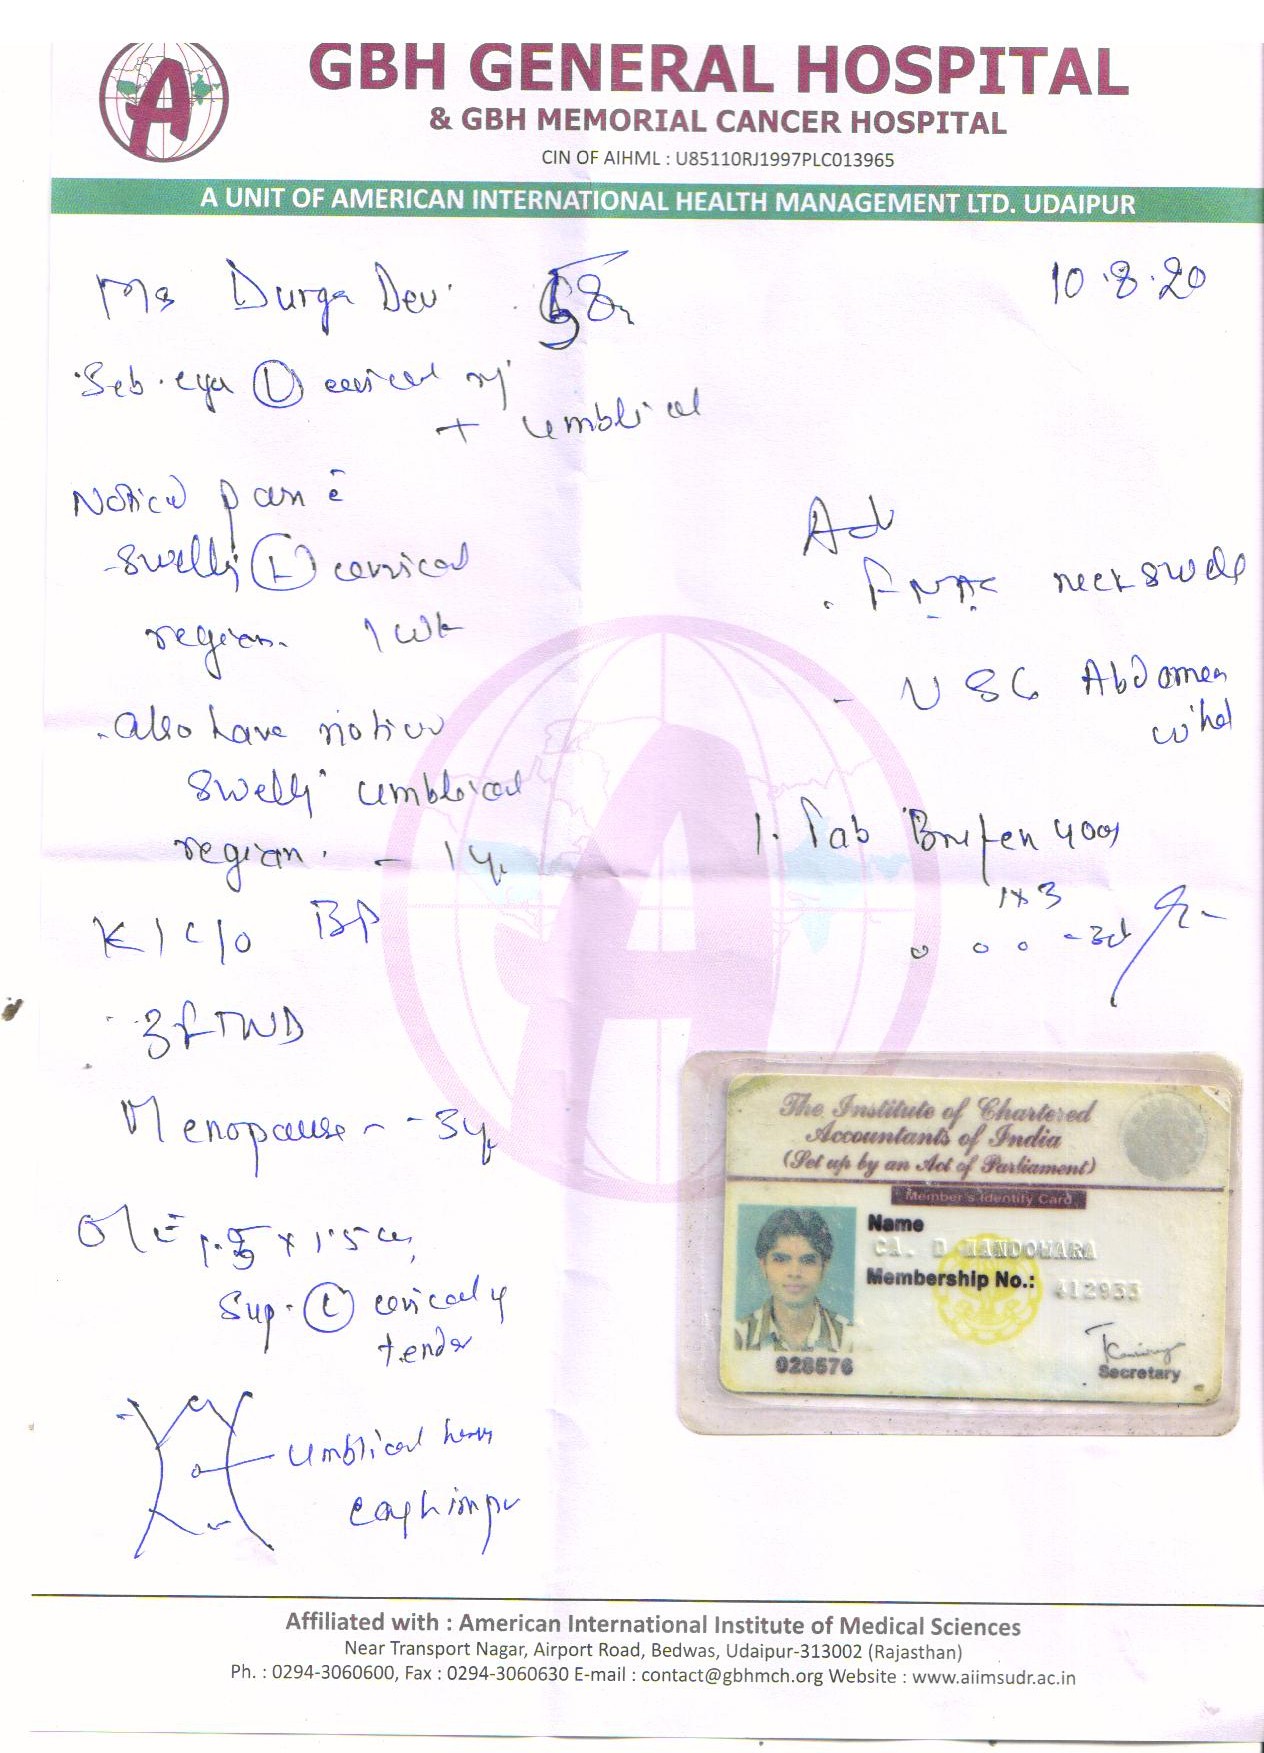 GBH GENERAL HOSPITAL
& GBH MEMORIAL CANCER HOSPITAL
CIN OF AIHML : U85110RJ1997PLC013965
A UNIT OF AMERICAN INTERNATIONAL HEALTH MANAGEMENT LTD. UDAIPUR
Durga Devi
10.8.20
Seb. L cervical
+ umblical
Notice pain c̄
swelling L cervical
region. 1 wk
Also have notice
swelling umblical
region. - 1 yr
K/C/O BP
3 FTND
Menopause - 3 yr
O/E 1.5 x 1.5 cm
Sup. L cervical
tender
umblical
cough imp
Adv
. FNAC neck swell
- USG Abdomen
whol
1. Tab Brufen 400
1x3
- 3d
The Institute of Chartered
Accountants of India
(Set up by an Act of Parliament)
Member's Identity Card
Name
CA. D MANDOWARA
Membership No.: 412933
028576
Secretary
Affiliated with : American International Institute of Medical Sciences
Near Transport Nagar, Airport Road, Bedwas, Udaipur-313002 (Rajasthan)
Ph. : 0294-3060600, Fax : 0294-3060630 E-mail : contact@gbhmch.org Website : www.aiimsudr.ac.in